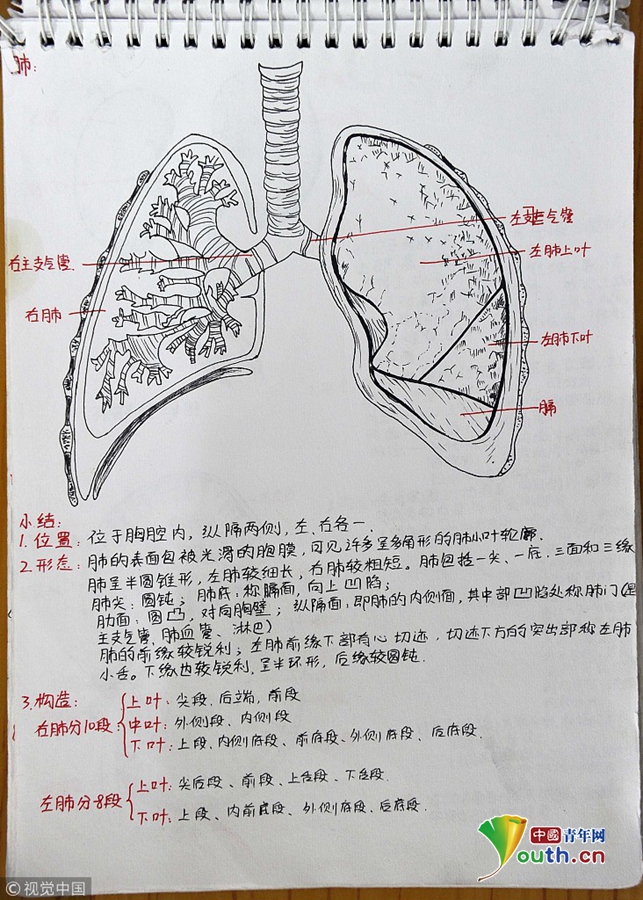 肺:
左主支气管
右主支气管
左肺上叶
右肺
左肺下叶
膈
小结:
1.位置: 位于胸腔内,纵隔两侧,左、右各一.
2.形态: 肺的表面包被光滑的胸膜,可见许多呈多角形的肺小叶轮廓.
肺呈半圆锥形,左肺较细长,右肺较粗短。肺包括一尖、一底、三面和三缘
肺尖:圆钝; 肺底:称膈面,向上凹陷;
肋面:圆凸,对向胸壁; 纵隔面:即肺的内侧面,其中部凹陷处称肺门(
主支气管、肺血管、淋巴)
肺的前缘较锐利;左肺前缘下部有心切迹,切迹下方的突出部称左肺
小舌。下缘也较锐利,呈半环形,后缘较圆钝.
3.构造:
右肺分10段:
上叶:尖段、后端、前段
中叶:外侧段、内侧段
下叶:上段、内侧底段、前底段、外侧底段、后底段.
左肺分8段
上叶:尖后段、前段、上舌段、下舌段.
下叶:上段、内前底段、外侧底段、后底段.
中國青年网
Youth.cn
©视觉中国